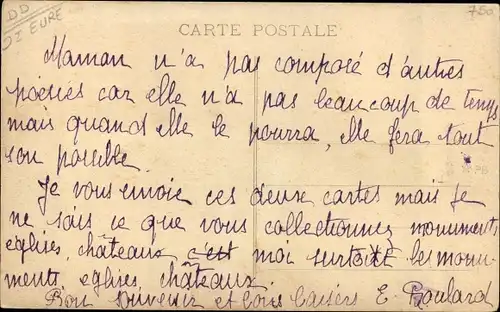 DD
DI EURE
750
CARTE POSTALE
Maman n'a pas composé d'autres
poésies car elle n'a pas beaucoup de temps
mais quand elle le pourra, elle fera tout
son possible.
Je vous envoie ces deux cartes mais je
ne sais ce que vous collectionnez monuments
eglises, châteaux c'est moi surtout les monu-
ments, eglises, châteaux.
Bon souvenir et bons baisers E. Boulard